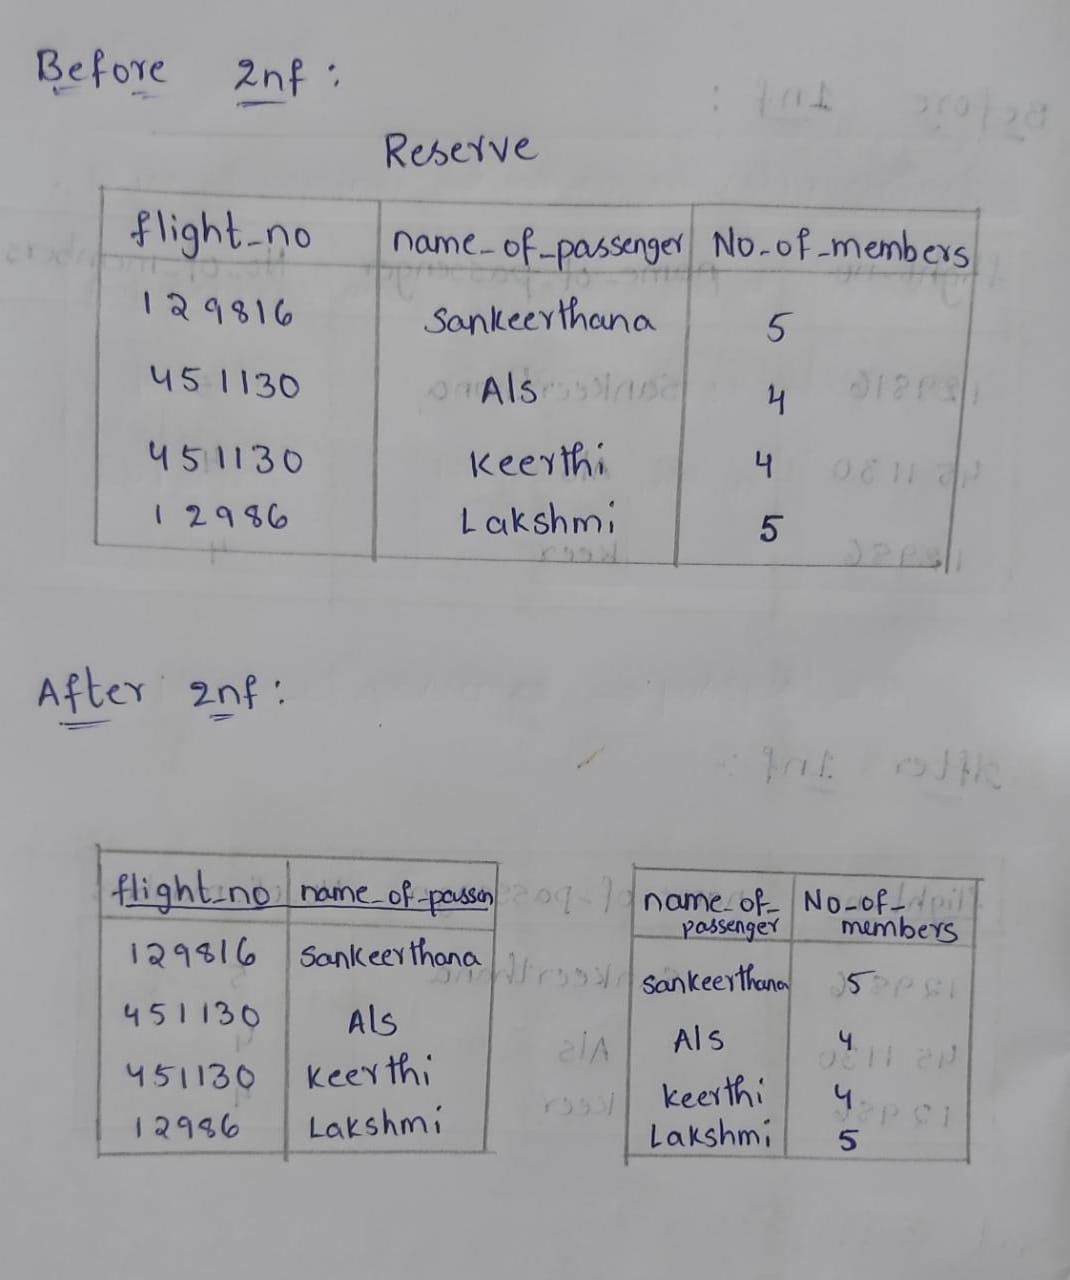 Before 2nf :
Reserve
flight_no name_of_passenger No_of_members
129816 Sankeerthana 5
451130 Als 4
451130 Keerthi 4
12986 Lakshmi 5
After 2nf :
flight_no name_of_passen
129816 Sankeerthana
451130 Als
451130 Keerthi
12986 Lakshmi
name_of_ No_of_
passenger members
Sankeerthana 5
Als 4
Keerthi 4
Lakshmi 5